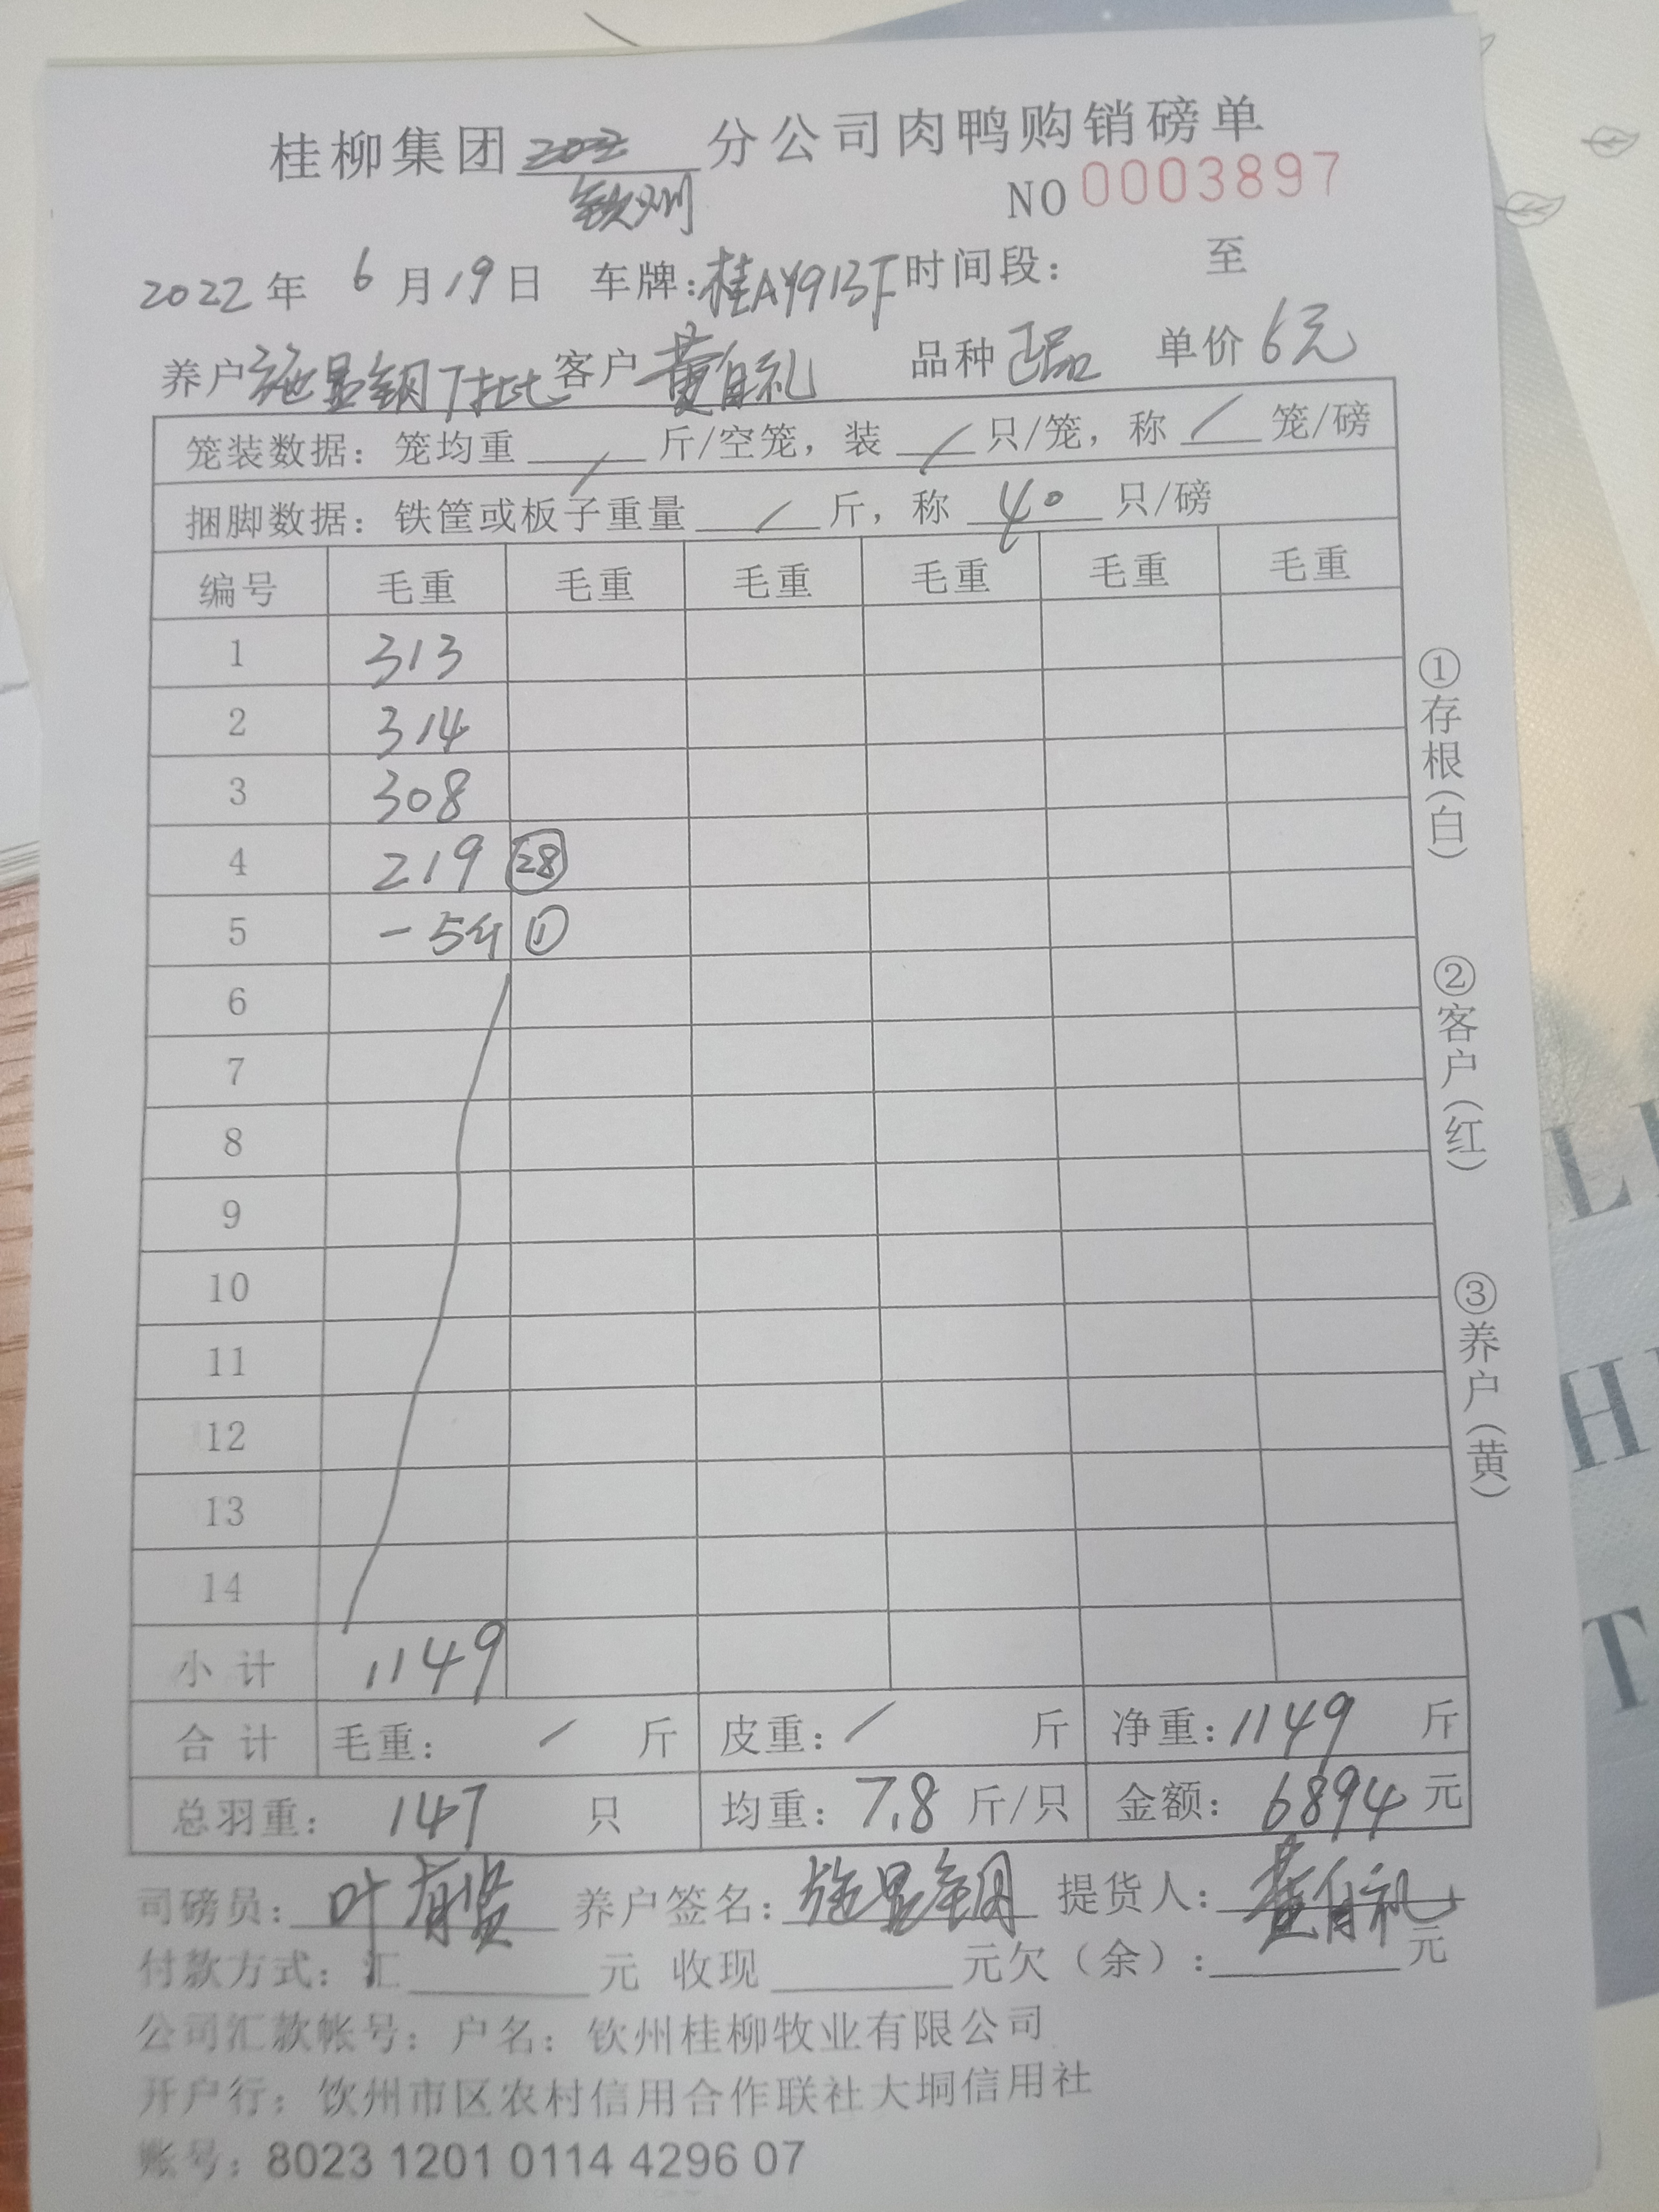 桂柳集团 分公司肉鸭购销磅单
钦州
NO 0003897
2022年 6月19日 车牌:桂AY913F 时间段: 至
养户 施显钢7批 客户 黄自礼 品种 正品 单价 6元
笼装数据: 笼均重 / 斤/空笼, 装 / 只/笼, 称 / 笼/磅
捆脚数据: 铁筐或板子重量 / 斤, 称 40 只/磅
编号 毛重 毛重 毛重 毛重 毛重 毛重
1 313
2 314
3 308
4 219 28
5 -5斤 ①
6
7
8
9
10
11
12
13
14
小计 1149
合计 毛重: / 斤 皮重: / 斤 净重: 1149 斤
总羽重: 147 只 均重: 7.8 斤/只 金额: 6894 元
司磅员: 叶有 养户签名: 施显钢 提货人: 黄自礼
付款方式: 汇 元 收现 元欠(余): 元
公司汇款帐号: 户名: 钦州桂柳牧业有限公司
开户行: 饮州市区农村信用合作联社大垌信用社
账号: 8023 1201 0114 4296 07
①存根(白)
②客户(红)
③养户(黄)